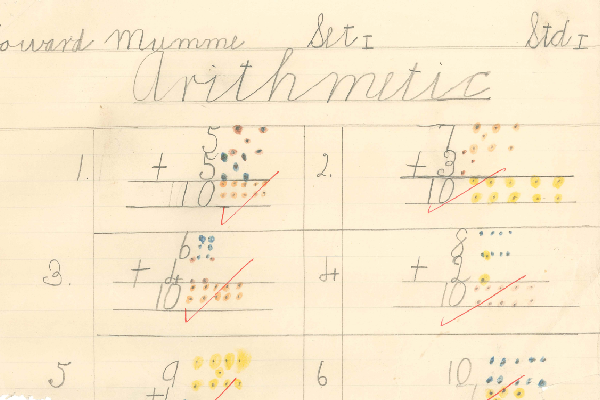 oward Mumme Set I Std I
Arithmetic
1. 5 + 5 10
2. 7 + 3 10
3. 6 + 4 10
4 8 + 2 10
5 9 +
6 10